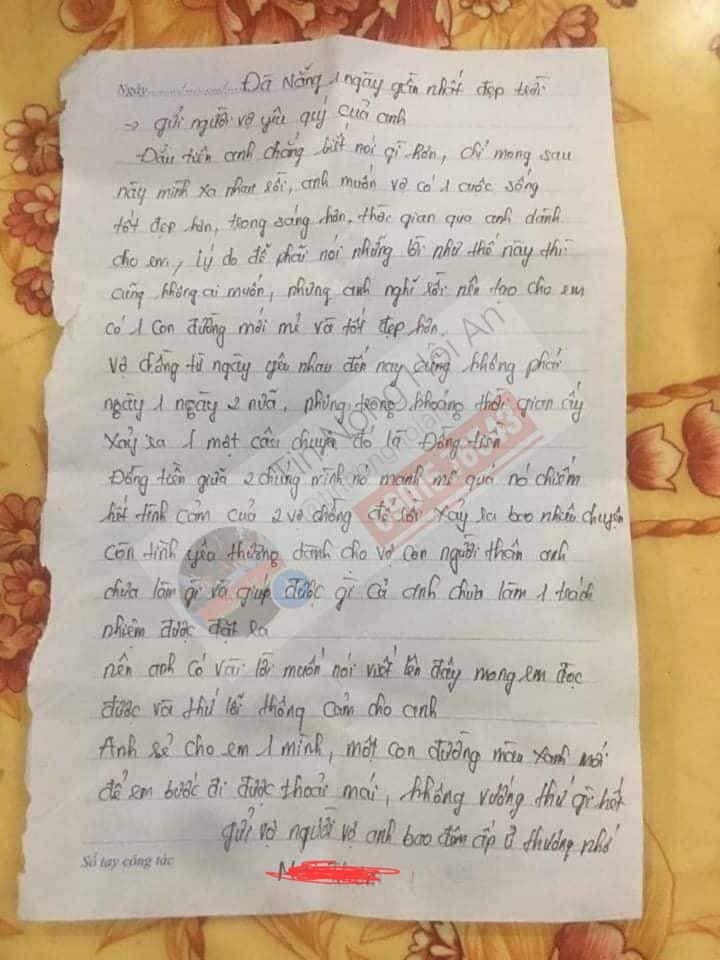 Ngày....../....../...... Đà Nẵng 1 ngày gần nhất đẹp trời
→ gửi người vợ yêu quý của anh
Đầu tiên anh chẳng biết nói gì hơn, chỉ mong sau
này mình xa nhau rồi, anh muốn vợ có 1 cuộc sống
tốt đẹp hơn, trong sáng hơn, thời gian qua anh dành
cho em, lý do để phải nói những lời như thế này thì
cũng không ai muốn, nhưng anh nghĩ rồi nên tạo cho em
có 1 con đường mới mẻ và tốt đẹp hơn.
Vợ chồng từ ngày yêu nhau đến nay cũng không phải
ngày 1 ngày 2 nữa, nhưng trong khoảng thời gian ấy
xảy ra 1 một câu chuyện đó là Đồng tiền
Đồng tiền giữa 2 chúng mình nó mạnh mẽ quá nó chiếm
hết tình cảm của 2 vợ chồng để rồi xảy ra bao nhiêu chuyện
còn tình yêu thương dành cho vợ con người thân anh
chưa làm gì và giúp được gì cả anh chưa làm 1 trách
nhiệm được đặt ra
nên anh có vài lời muốn nói viết lên đây mong em đọc
được và thứ lỗi thông cảm cho anh
Anh sẽ cho em 1 mình, một con đường màu xanh mới
để em bước đi được thoải mái, không vướng thứ gì hết
gửi vợ người vợ anh bao đêm ấp ủ thương nhớ
Sổ tay công tác
Tin Nóng Hội An